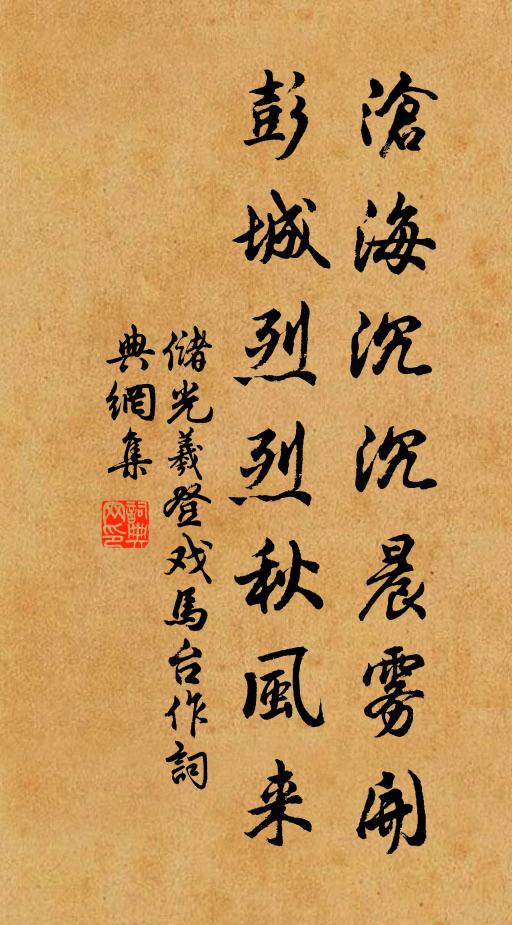 滄海沉沉晨雾開
彭城烈烈秋風来
儲光羲登戏馬台作詞
典網集
詞典
网印